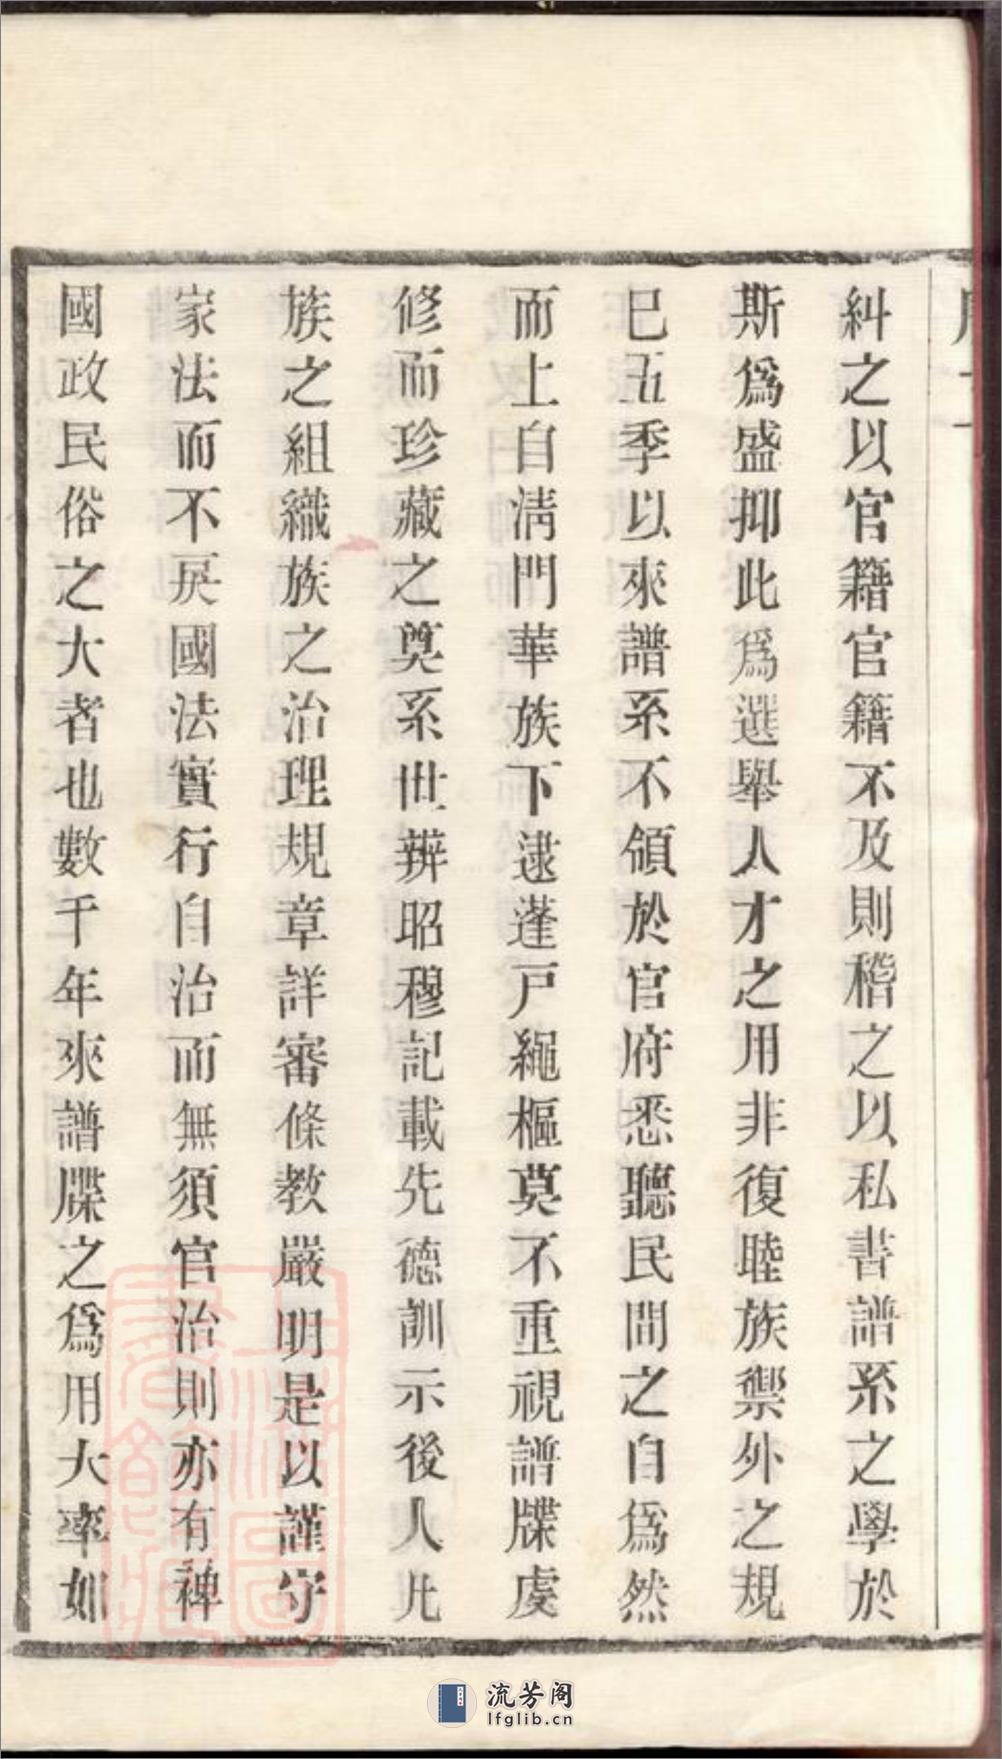 糾之以官籍官籍不及則稽之以私書譜系之學於
斯爲盛抑此爲選舉人才之用非復睦族禦外之規
已五季以來譜系不領於官府悉聽民間之自爲然
而上自淸門華族下逮蓬戸繩樞莫不重視譜牒虔
修而珍藏之奠系世辨昭穆記載先德訓示後人凡
族之組織族之治理規章詳審條敎嚴明是以謹守
家法而不戾國法實行自治而無須官治則亦有裨
國政民俗之大者也數千年來譜牒之爲用大率如
流芳阁
lfglib.cn